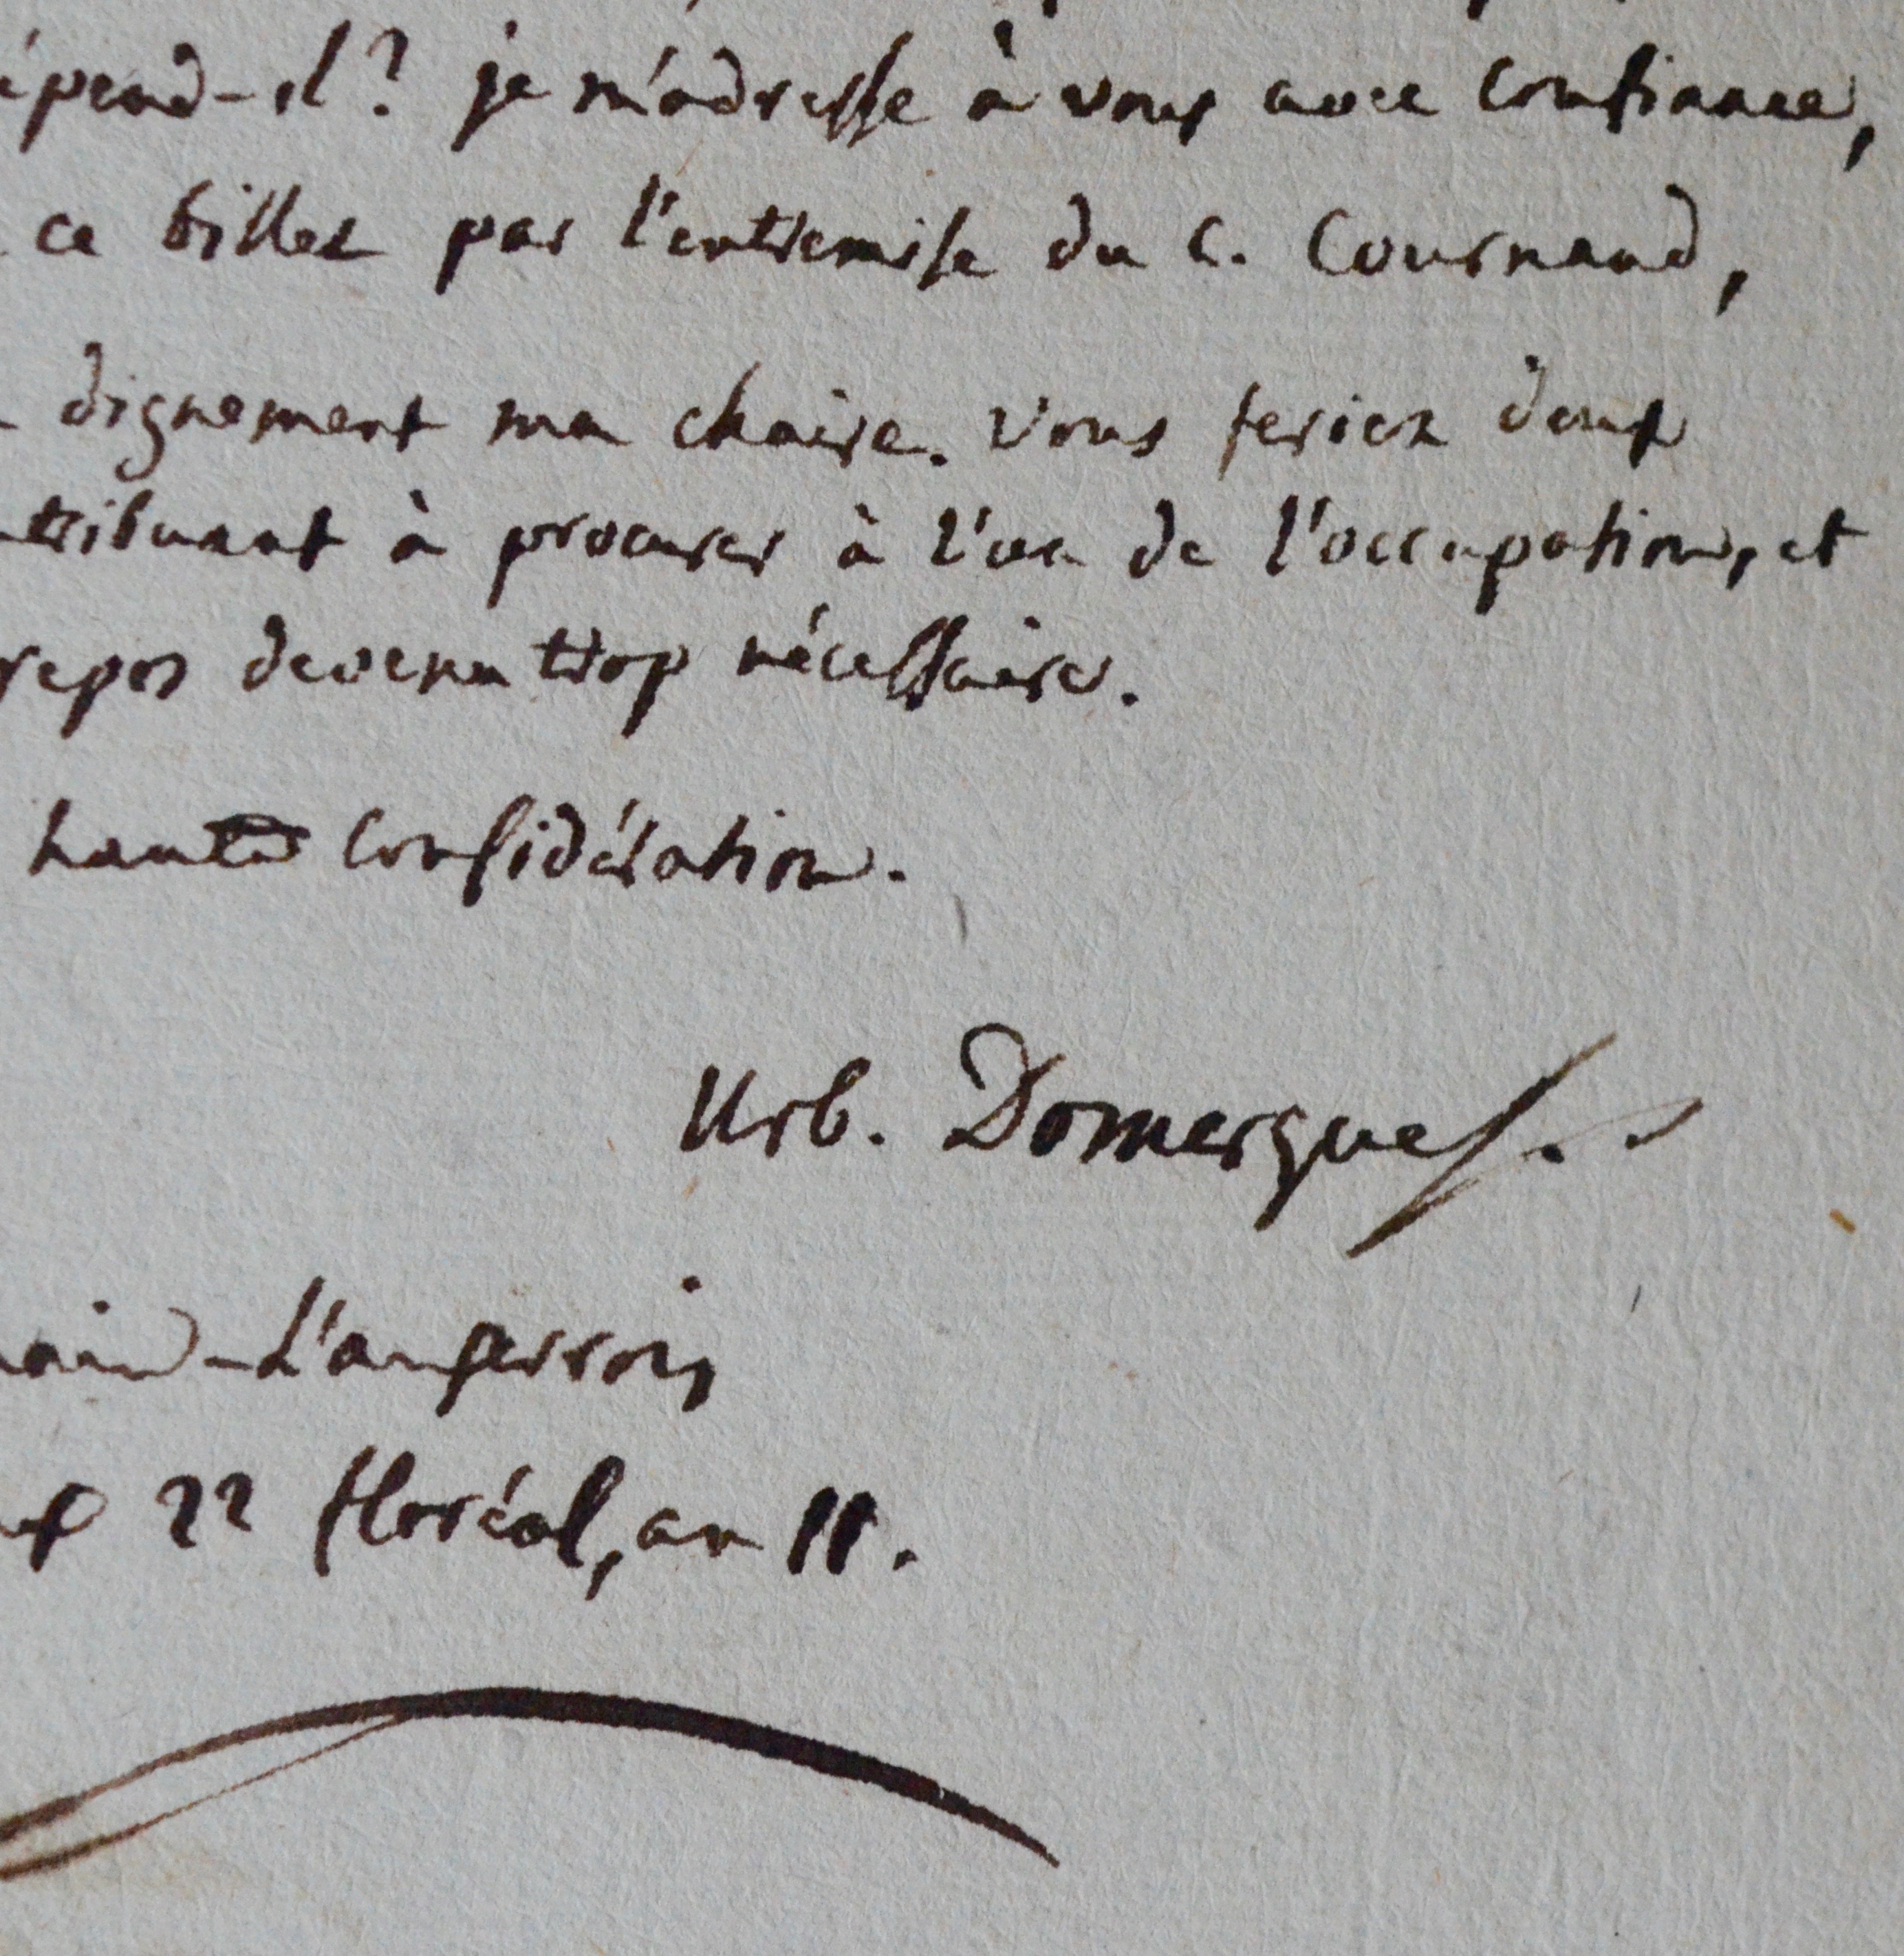 épend-il? je m'adresse à vous avec confiance,
ce billet par l'entremise du C. Cournand,
dignement ma chaire. Vous feriez deux
tribuant à procurer à l'un de l'occupation, et
repos devenu trop nécessaire.
haute considération.
Urb. Domergue
main-L'auxerrois
22 floréal, an 11.